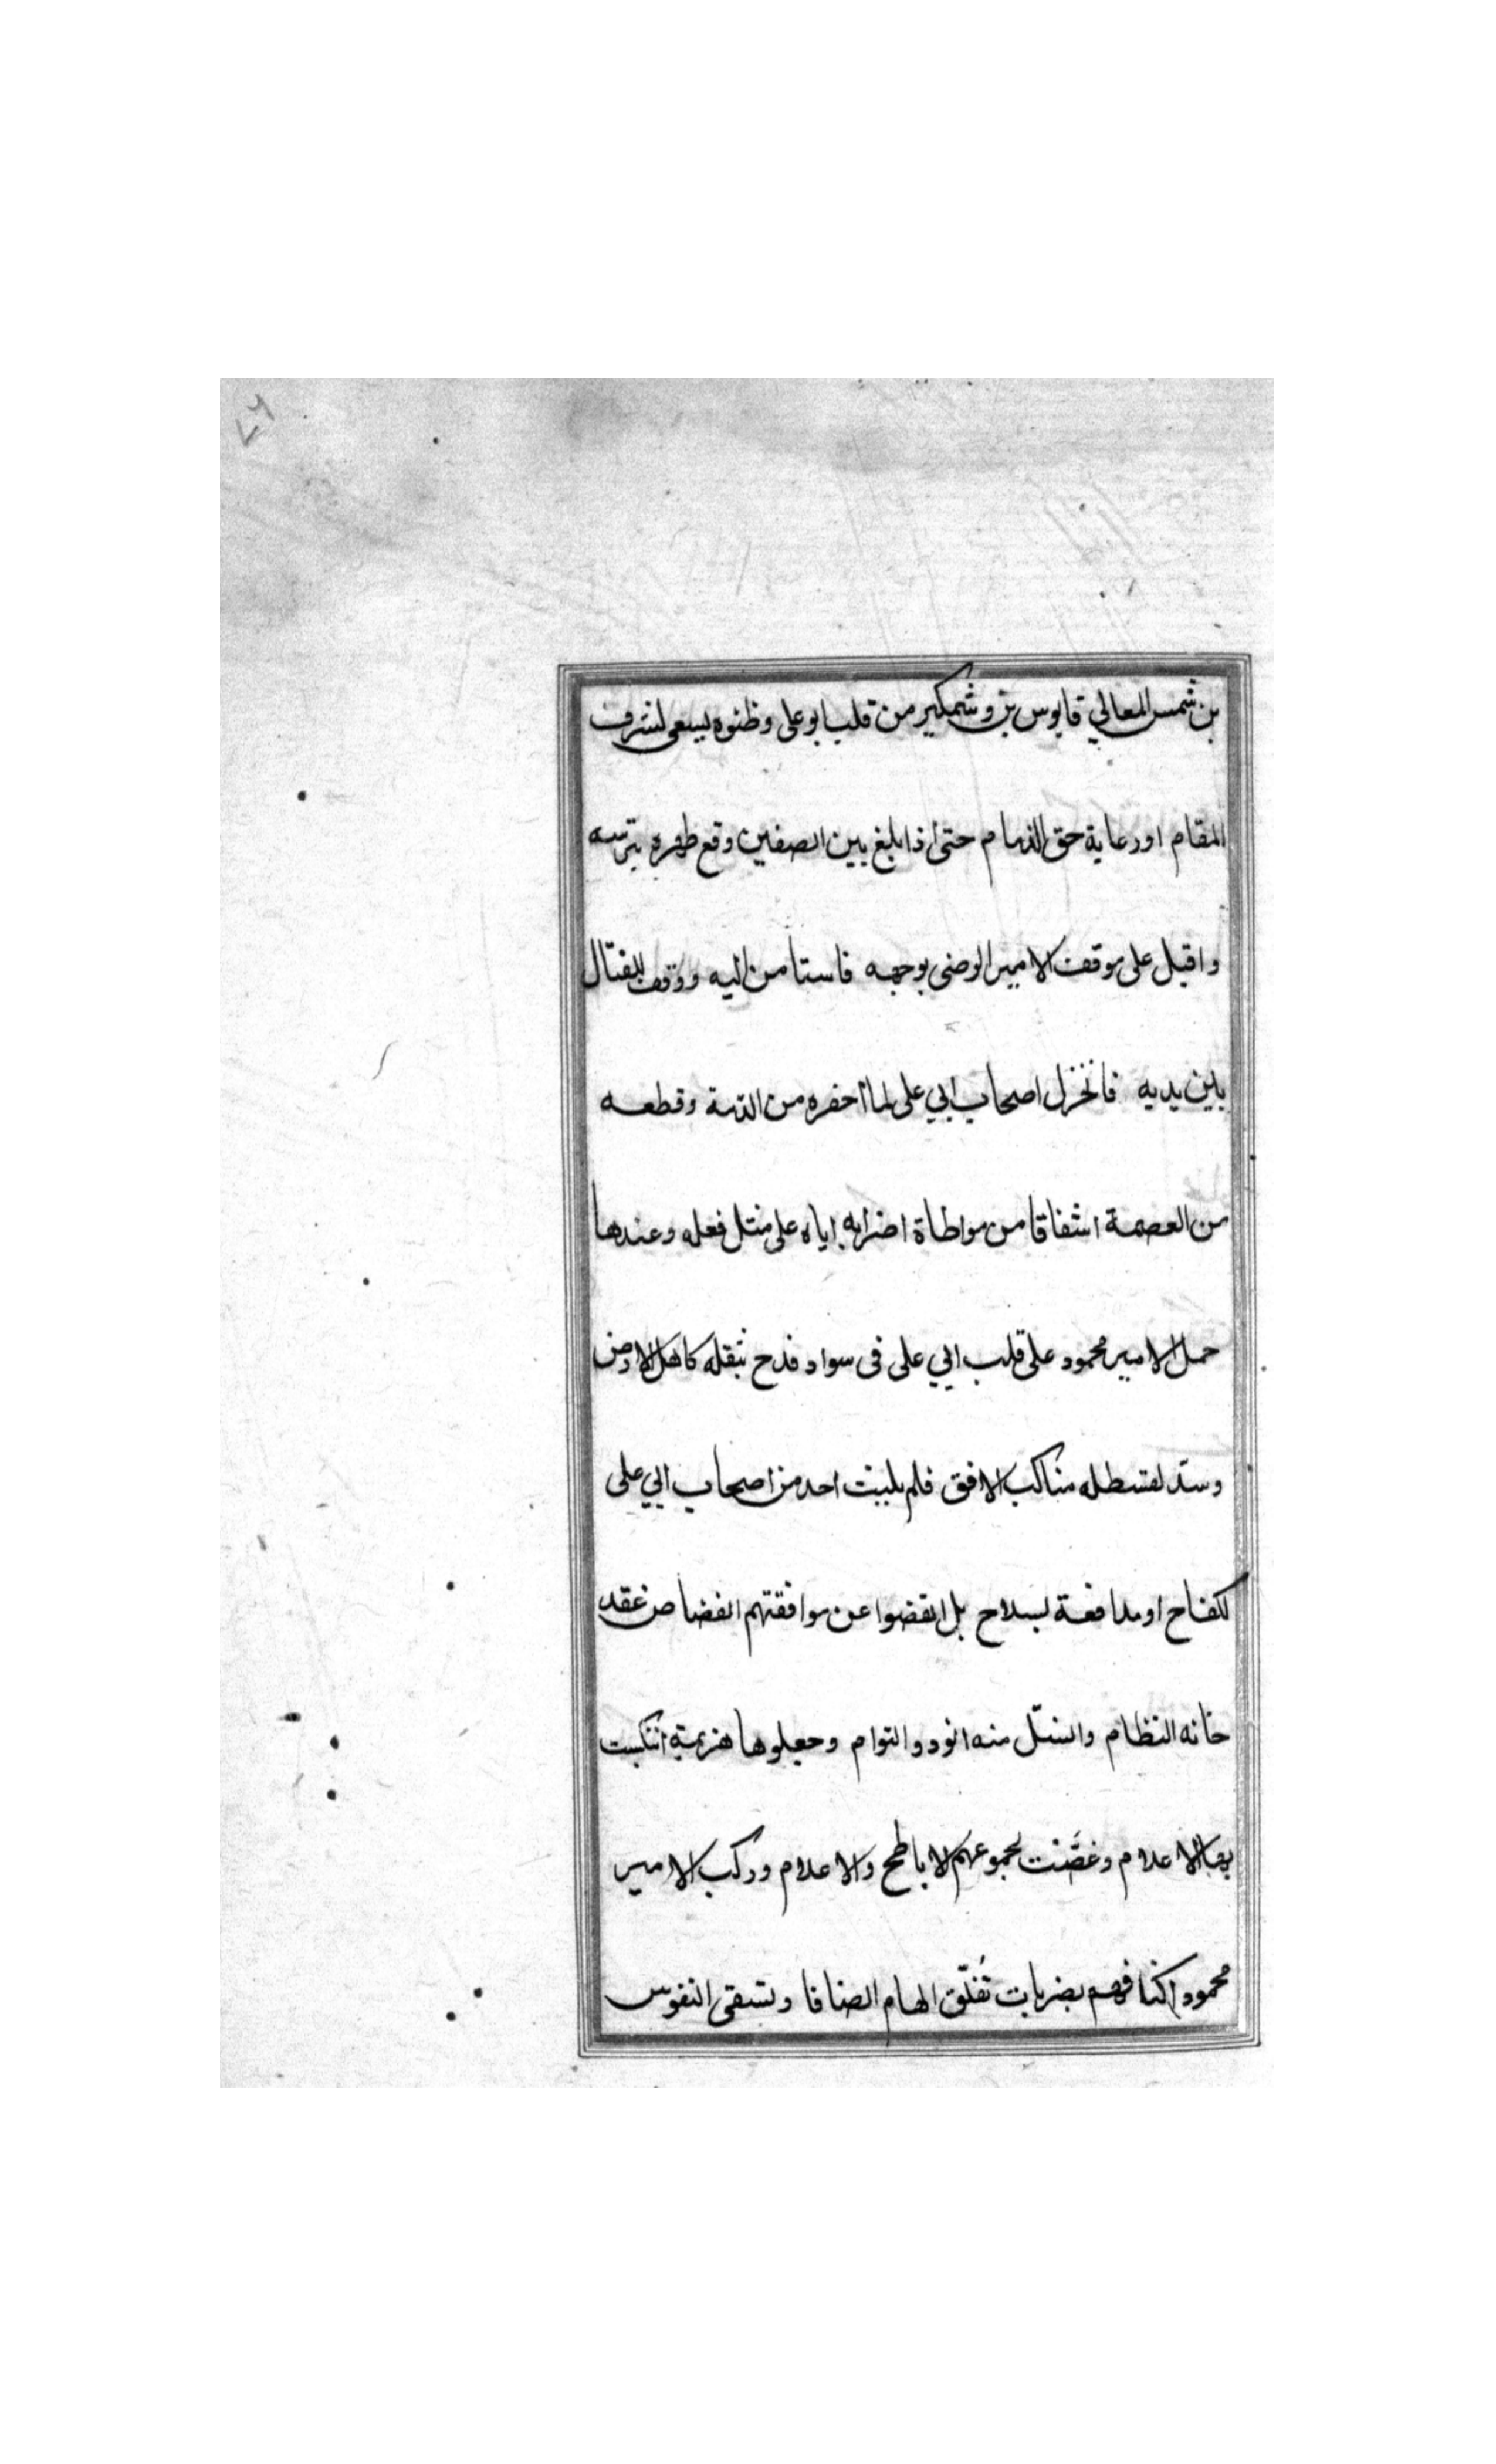 بن شمس المعالي قابوس بن وشمكير من قلب بوعلى وظنوه يسعى لشرف
المقام او رعاية حق الذمام حتى اذا بلغ بين الصفين وقع ظهره بترسه
واقبل على موقف الامير الرضى بوجهه فاستامن اليه ووقف للقتال
بين يديه فانخزل اصحاب ابي على لما اخفره من الذمة وقطعه
من العصمة اشفاقا من مواطاة اضرابه اياه على مثل فعله وعندها
حمل الامير محمود على قلب ابي على فى سواد فدح بثقله كاهل الارض
وسد لقسطله مناكب الافق فلم يلبث احد من اصحاب ابي على
لكفاح او مدافعة بسلاح بل انفضوا عن موافقتهم انفضاض عقد
خانه النظام وانسل منه الفرد والتوام وجعلوها هزيمة انتكست
بها الاعلام وغصت لجموعهم الاباطح والاعلام وركب الامير
محمود اكتافهم بضربات تفلق الهام انصافا وتسقى النفوس